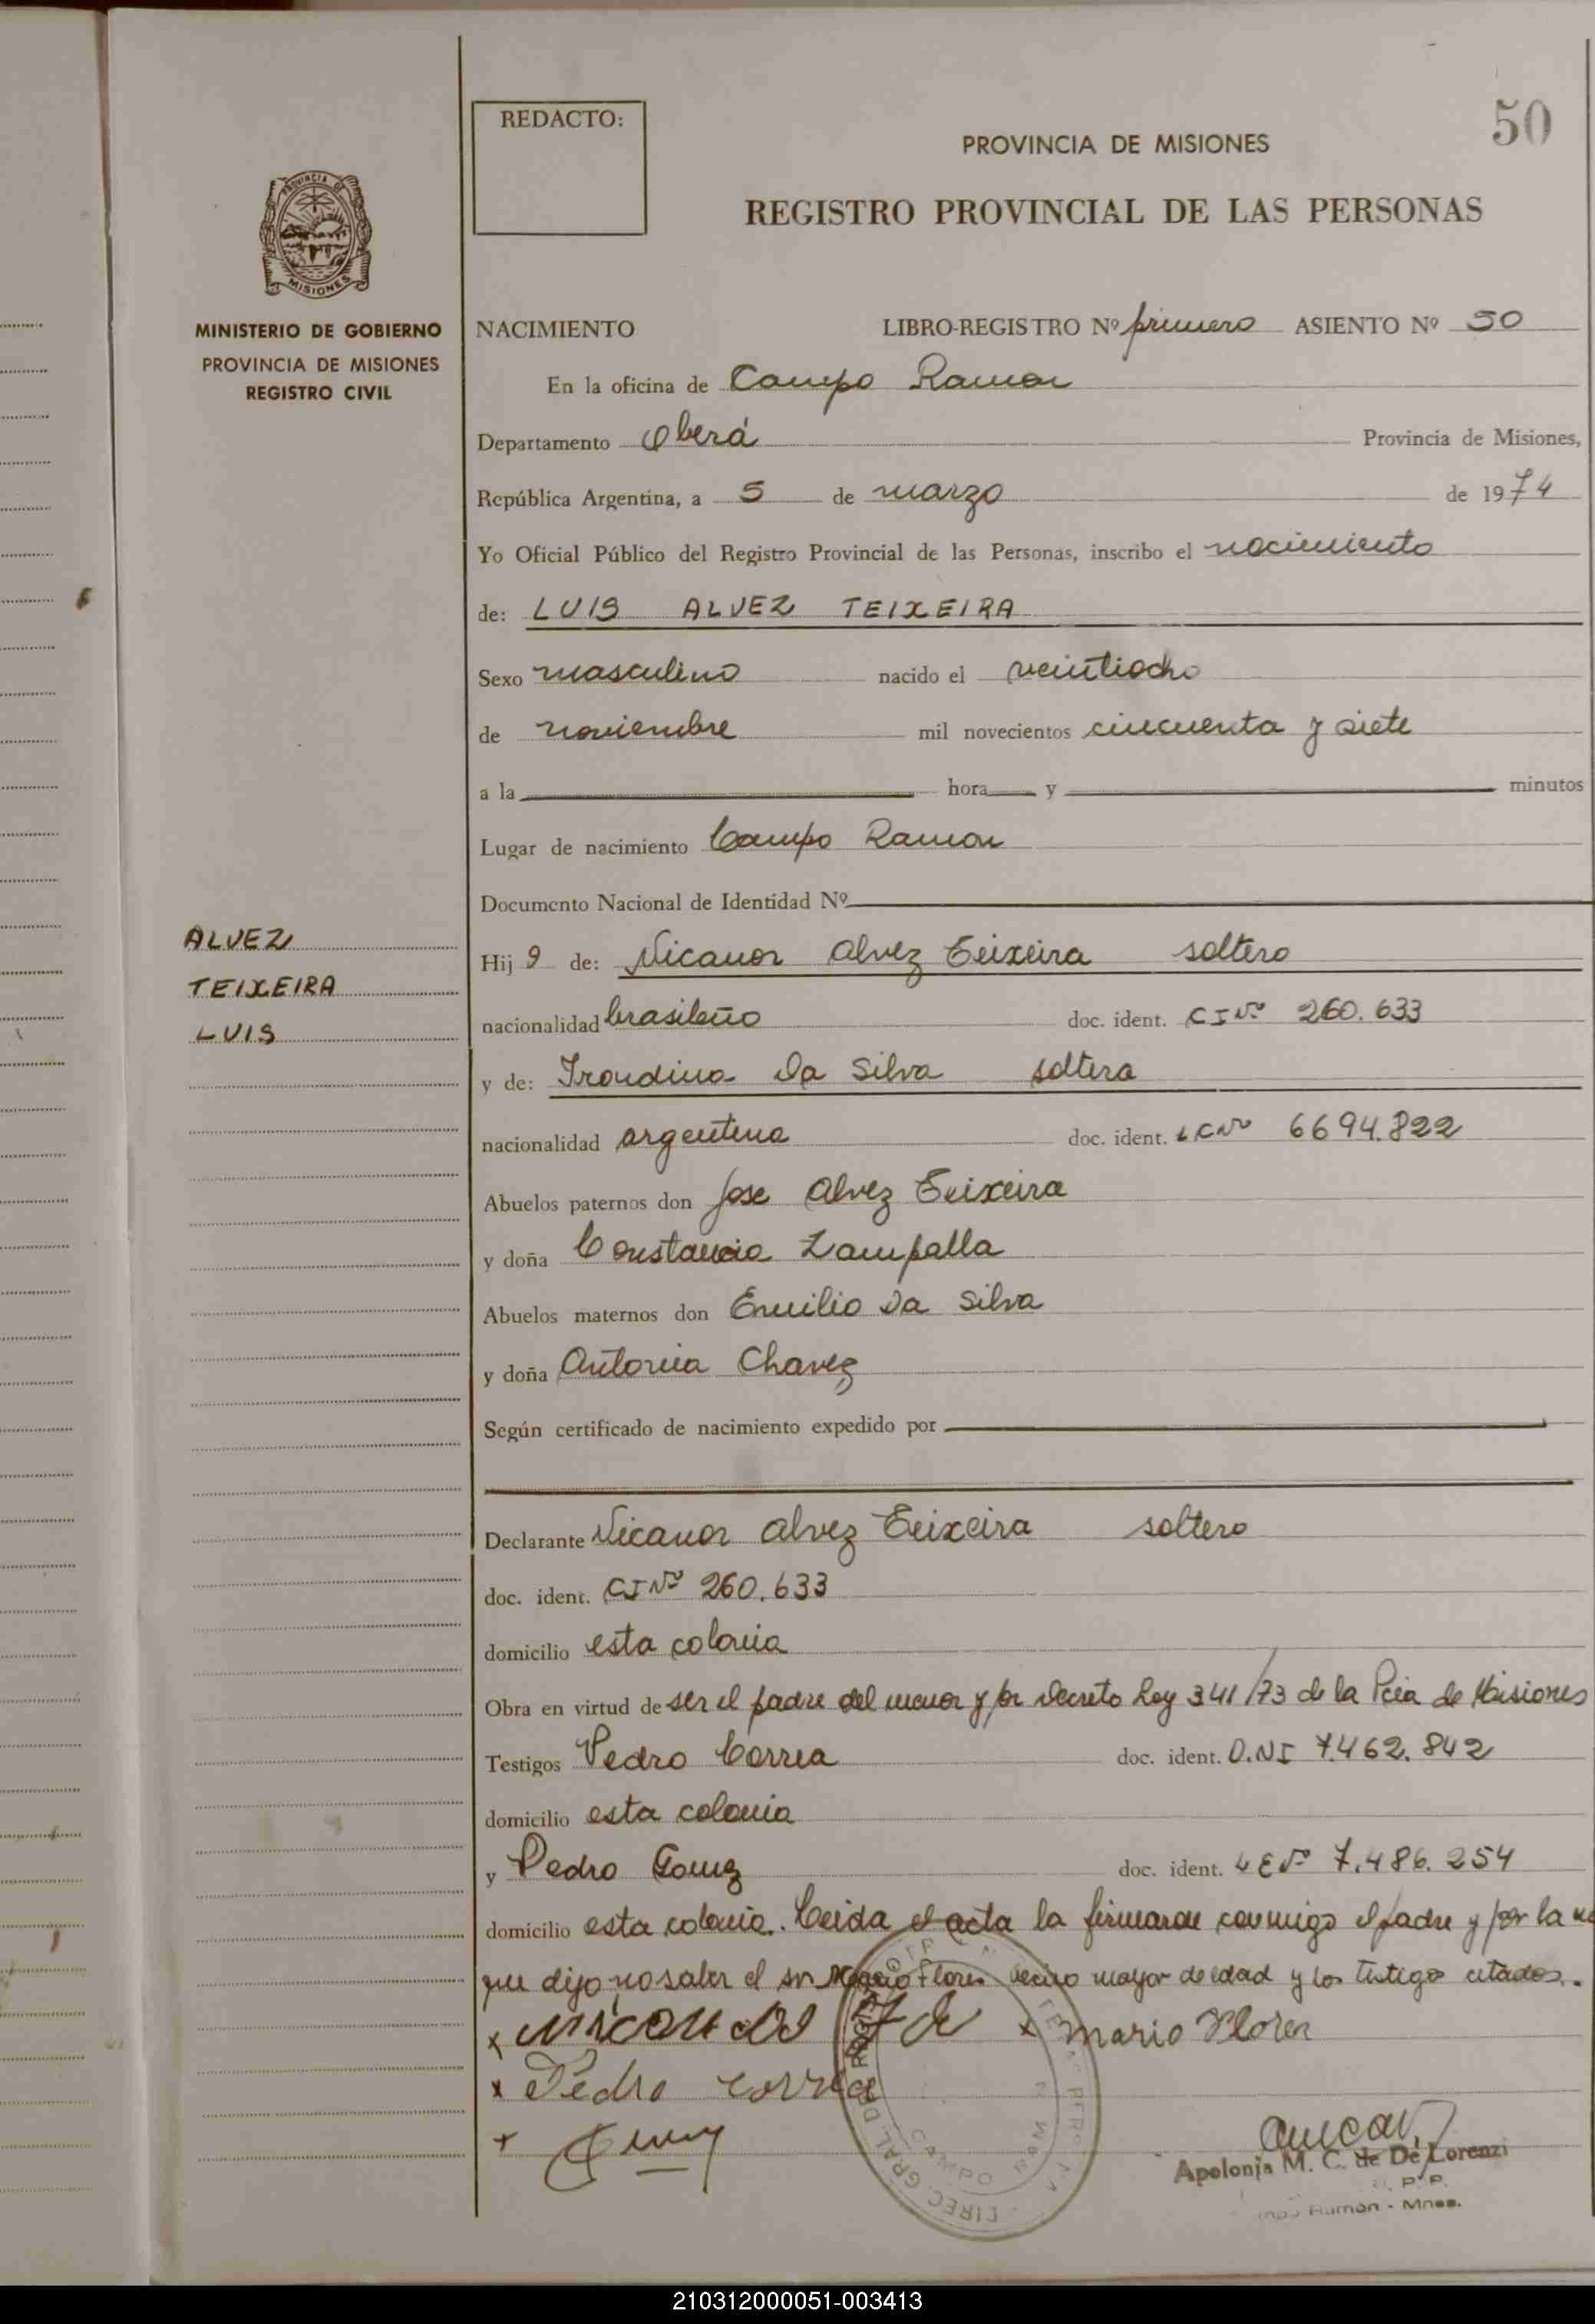 50
REDACTO:
PROVINCIA DE MISIONES
REGISTRO PROVINCIAL DE LAS PERSONAS
PROVINCIA DE
MISIONES
MINISTERIO DE GOBIERNO
PROVINCIA DE MISIONES
REGISTRO CIVIL
NACIMIENTO LIBRO-REGISTRO Nº primero ASIENTO Nº 50
En la oficina de Campo Ramon
Departamento Oberá Provincia de Misiones,
República Argentina, a 5 de marzo de 1974
Yo Oficial Público del Registro Provincial de las Personas, inscribo el nacimiento
de: LUIS ALVEZ TEIXEIRA
Sexo masculino nacido el veintiocho
de noviembre mil novecientos cincuenta y siete
a la hora y minutos
Lugar de nacimiento Campo Ramon
Documento Nacional de Identidad Nº
ALVEZ
TEIXEIRA
LUIS
Hijo de: Nicanor Alvez Teixeira soltero
nacionalidad brasileño doc. ident. CI Nº 260.633
y de: Irondina Da Silva soltera
nacionalidad argentina doc. ident. LC Nº 6694.822
Abuelos paternos don Jose Alvez Teixeira
y doña Constancia Zampalla
Abuelos maternos don Emilio Da Silva
y doña Antonia Chavez
Según certificado de nacimiento expedido por
Declarante Nicanor Alvez Teixeira soltero
doc. ident. CI Nº 260.633
domicilio esta colonia
Obra en virtud de ser el padre del menor y por Decreto Ley 341/73 de la Pcia de Misiones
Testigos Pedro Correa doc. ident. D.NI 7.462.842
domicilio esta colonia
y Pedro Gomez doc. ident. LE Nº 7.486.254
domicilio esta colonia. Leida el acta la firmaron conmigo el padre y por la
que dijo no saber el sr Mario Flores vecino mayor de edad y los testigos citados.
x x Mario Flores
x Pedro Correa
Apolonia M. C. de De Lorenzi
Ramón - Mnes.
DIREC. GRAL. DE
CAMPO
210312000051-003413